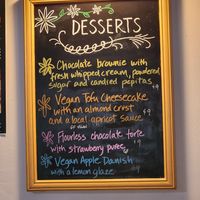 DESSERTS
Chocolate brownie with
fresh whipped cream, powdered
sugar and candied pepitas
Vegan Tofu Cheesecake
with an almond crust
and a local apricot sauce
Flourless chocolate torte
with strawberry puree
Vegan Apple Danish
with a lemon glaze